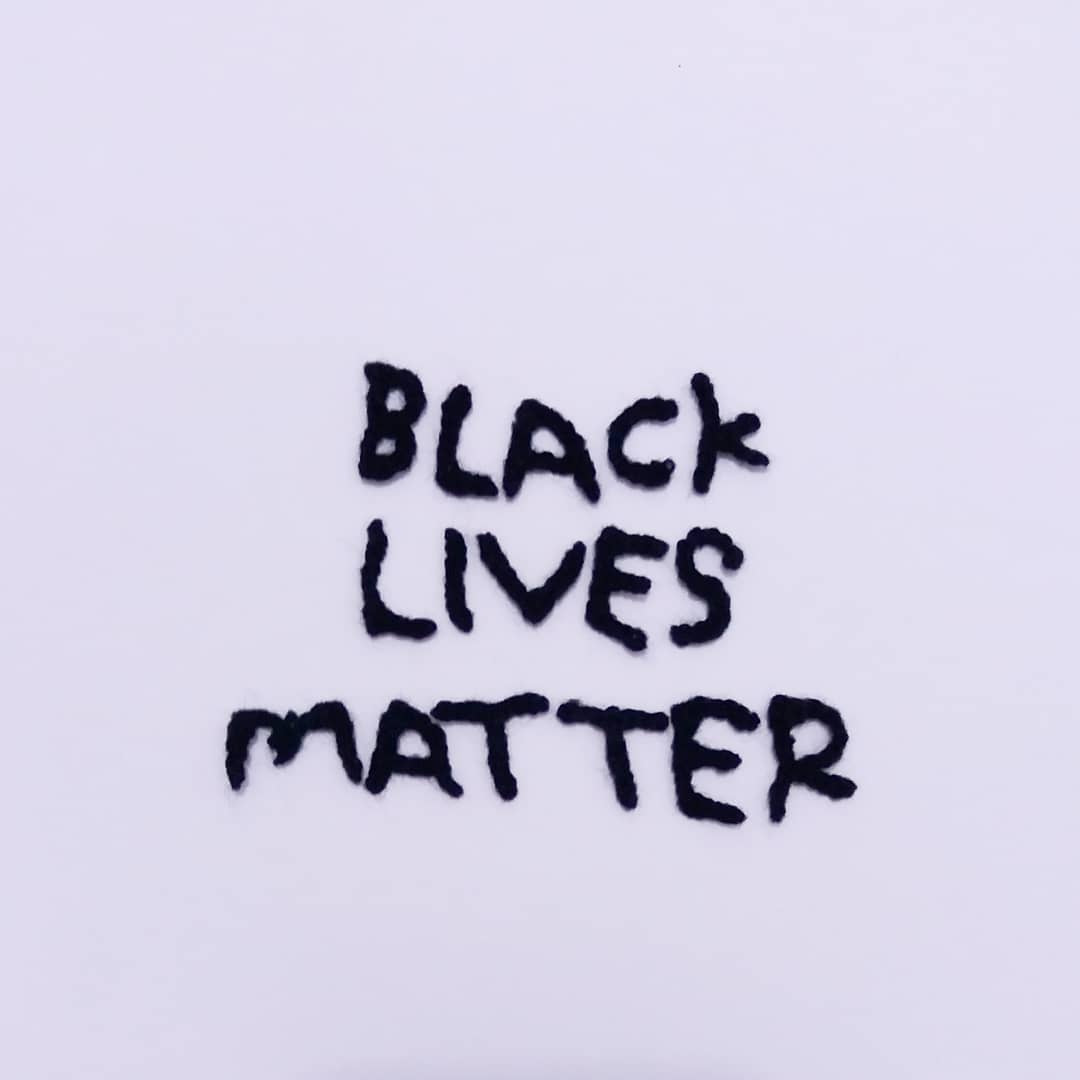 BLACk
LIVES
MATTER